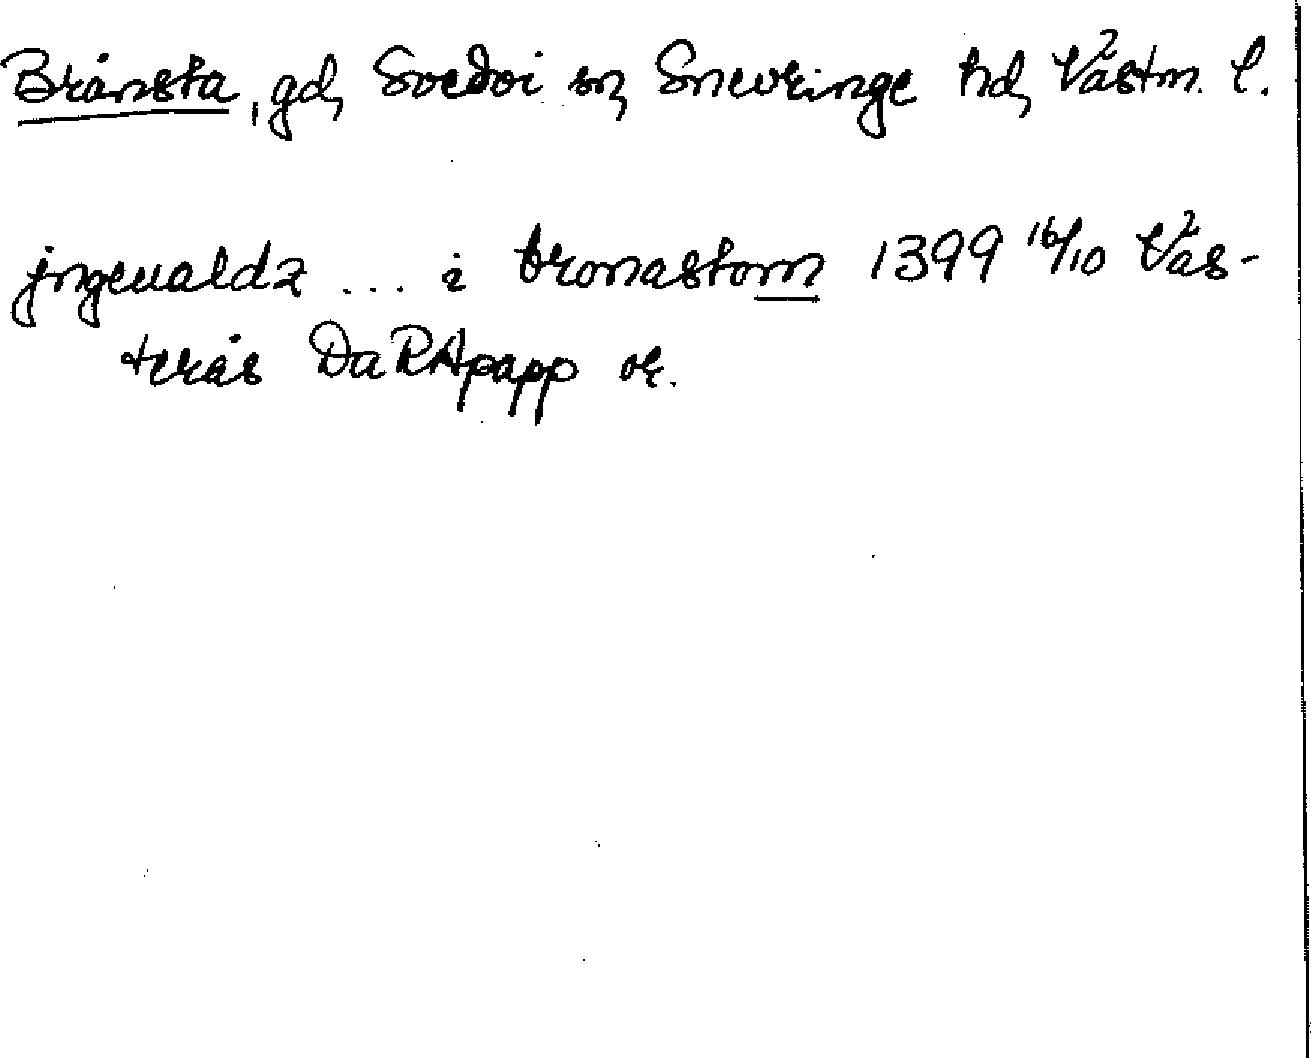 Brånsta, gd, Svedvi sn, Snevringe hd, Västm. l.
jngeualdz ... i bronastom 1399 16/10 Väs-
terås DaRApapp or.